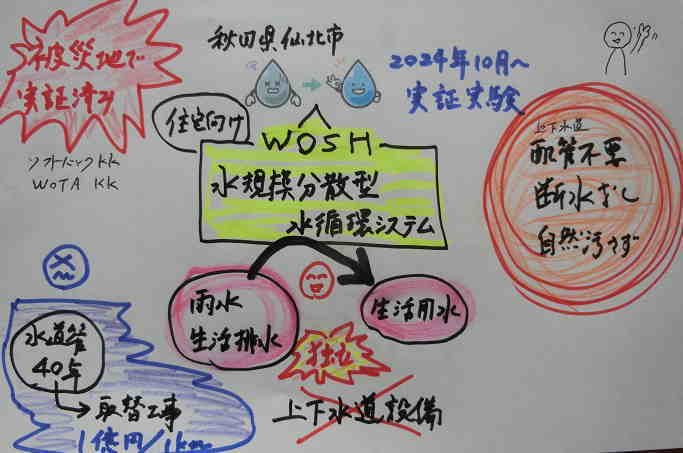 被災地で
実証済み
ソフトバンクKK
WOTA KK
秋田県仙北市
2024年10月～
実証実験
住宅向け
WOSH
水規模分散型
水循環システム
上下水道
配管不要
断水なし
自然汚さず
雨水
生活排水
生活用水
水道管
40年
取替工事
1億円/1km
独立
上下水道設備